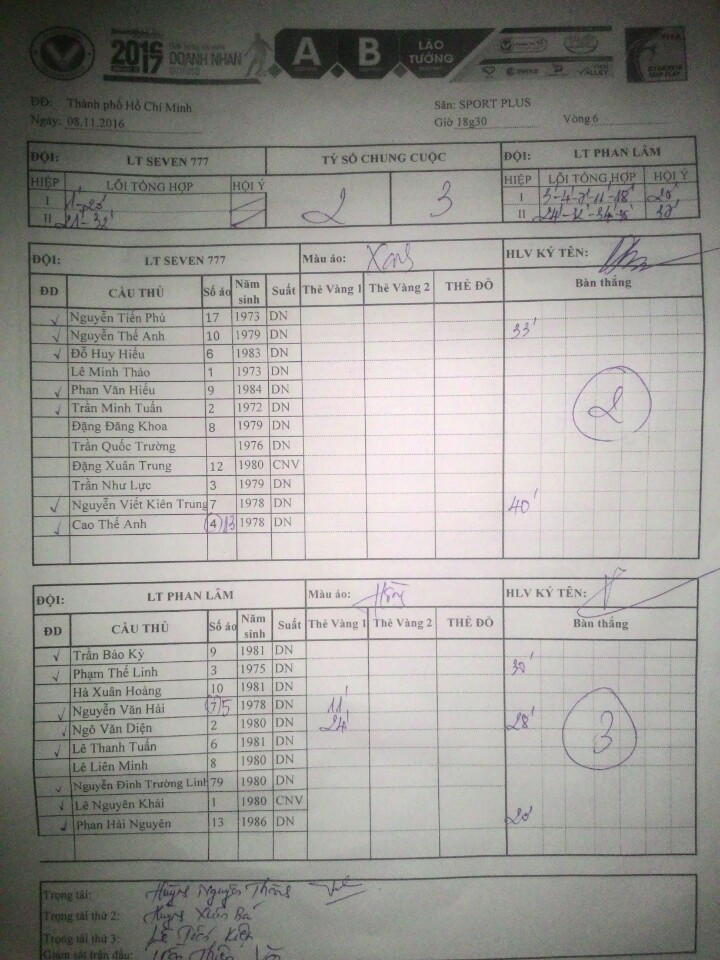 2016 2017 DOANH NHÂN
A B LÃO TƯỚNG
VALLEY
ĐĐ: Thành phố Hồ Chí Minh Sân: SPORT PLUS
Ngày: 08.11.2016 Giờ 18g30 Vòng 6
ĐỘI: LT SEVEN 777 TỶ SỐ CHUNG CUỘC ĐỘI: LT PHAN LÂM
HIỆP LỖI TỔNG HỢP HỘI Ý 2 3 HIỆP LỖI TỔNG HỢP HỘI Ý
I I 20'
II 21'-32' II
ĐỘI: LT SEVEN 777 Màu áo: Xanh HLV KÝ TÊN:
ĐD CẦU THỦ Số áo Năm sinh Suất Thẻ Vàng 1 Thẻ Vàng 2 THẺ ĐỎ Bàn thắng
✓ Nguyễn Tiến Phú 17 1973 DN
✓ Nguyễn Thế Anh 10 1979 DN 33'
✓ Đỗ Huy Hiếu 6 1983 DN
Lê Minh Thảo 1 1973 DN
✓ Phan Văn Hiếu 9 1984 DN
✓ Trần Minh Tuấn 2 1972 DN 2
Đặng Đăng Khoa 8 1979 DN
Trần Quốc Trường 1976 DN
Đặng Xuân Trung 12 1980 CNV
Trần Như Lực 3 1979 DN
✓ Nguyễn Viết Kiên Trung 7 1978 DN 40'
✓ Cao Thế Anh 4 13 1978 DN
ĐỘI: LT PHAN LÂM Màu áo: Hồng HLV KÝ TÊN:
ĐD CẦU THỦ Số áo Năm sinh Suất Thẻ Vàng 1 Thẻ Vàng 2 THẺ ĐỎ Bàn thắng
✓ Trần Bảo Kỳ 9 1981 DN
✓ Phạm Thế Linh 3 1975 DN
Hà Xuân Hoàng 10 1981 DN
✓ Nguyễn Văn Hải 7 5 1978 DN 11'
✓ Ngô Văn Diện 2 1980 DN 24' 28' 3
✓ Lê Thanh Tuấn 6 1981 DN
Lê Liên Minh 8 1980 DN
✓ Nguyễn Đình Trường Linh 79 1980 DN
✓ Lê Nguyên Khải 1 1980 CNV
✓ Phan Hải Nguyên 13 1986 DN 20'
Trọng tài: Huỳnh Nguyễn
Trọng tài thứ 2: Huỳnh Xuân Bá
Trọng tài thứ 3: Lê Kiên
Giám sát trận đấu: